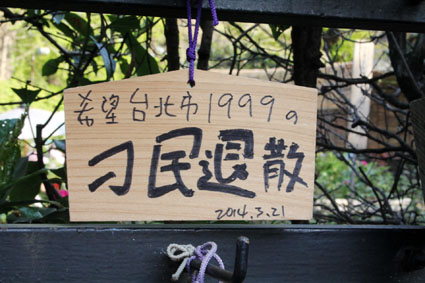 希望台北市1999。
刁民退散
2014.3.21